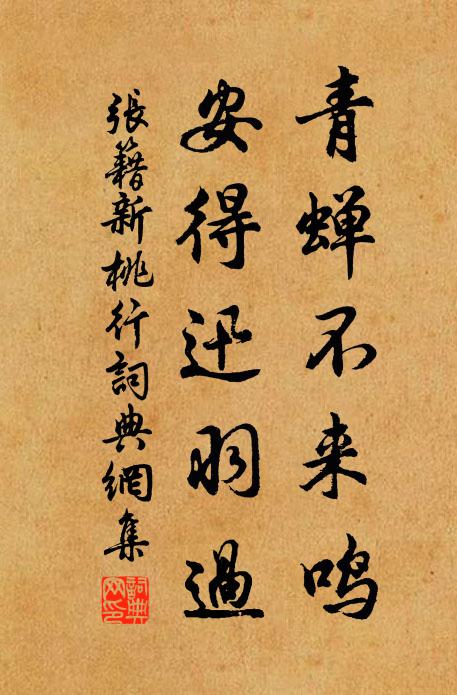 青蝉不来鸣
安得迅羽過
張籍新桃行詞典網集
詞典
网印